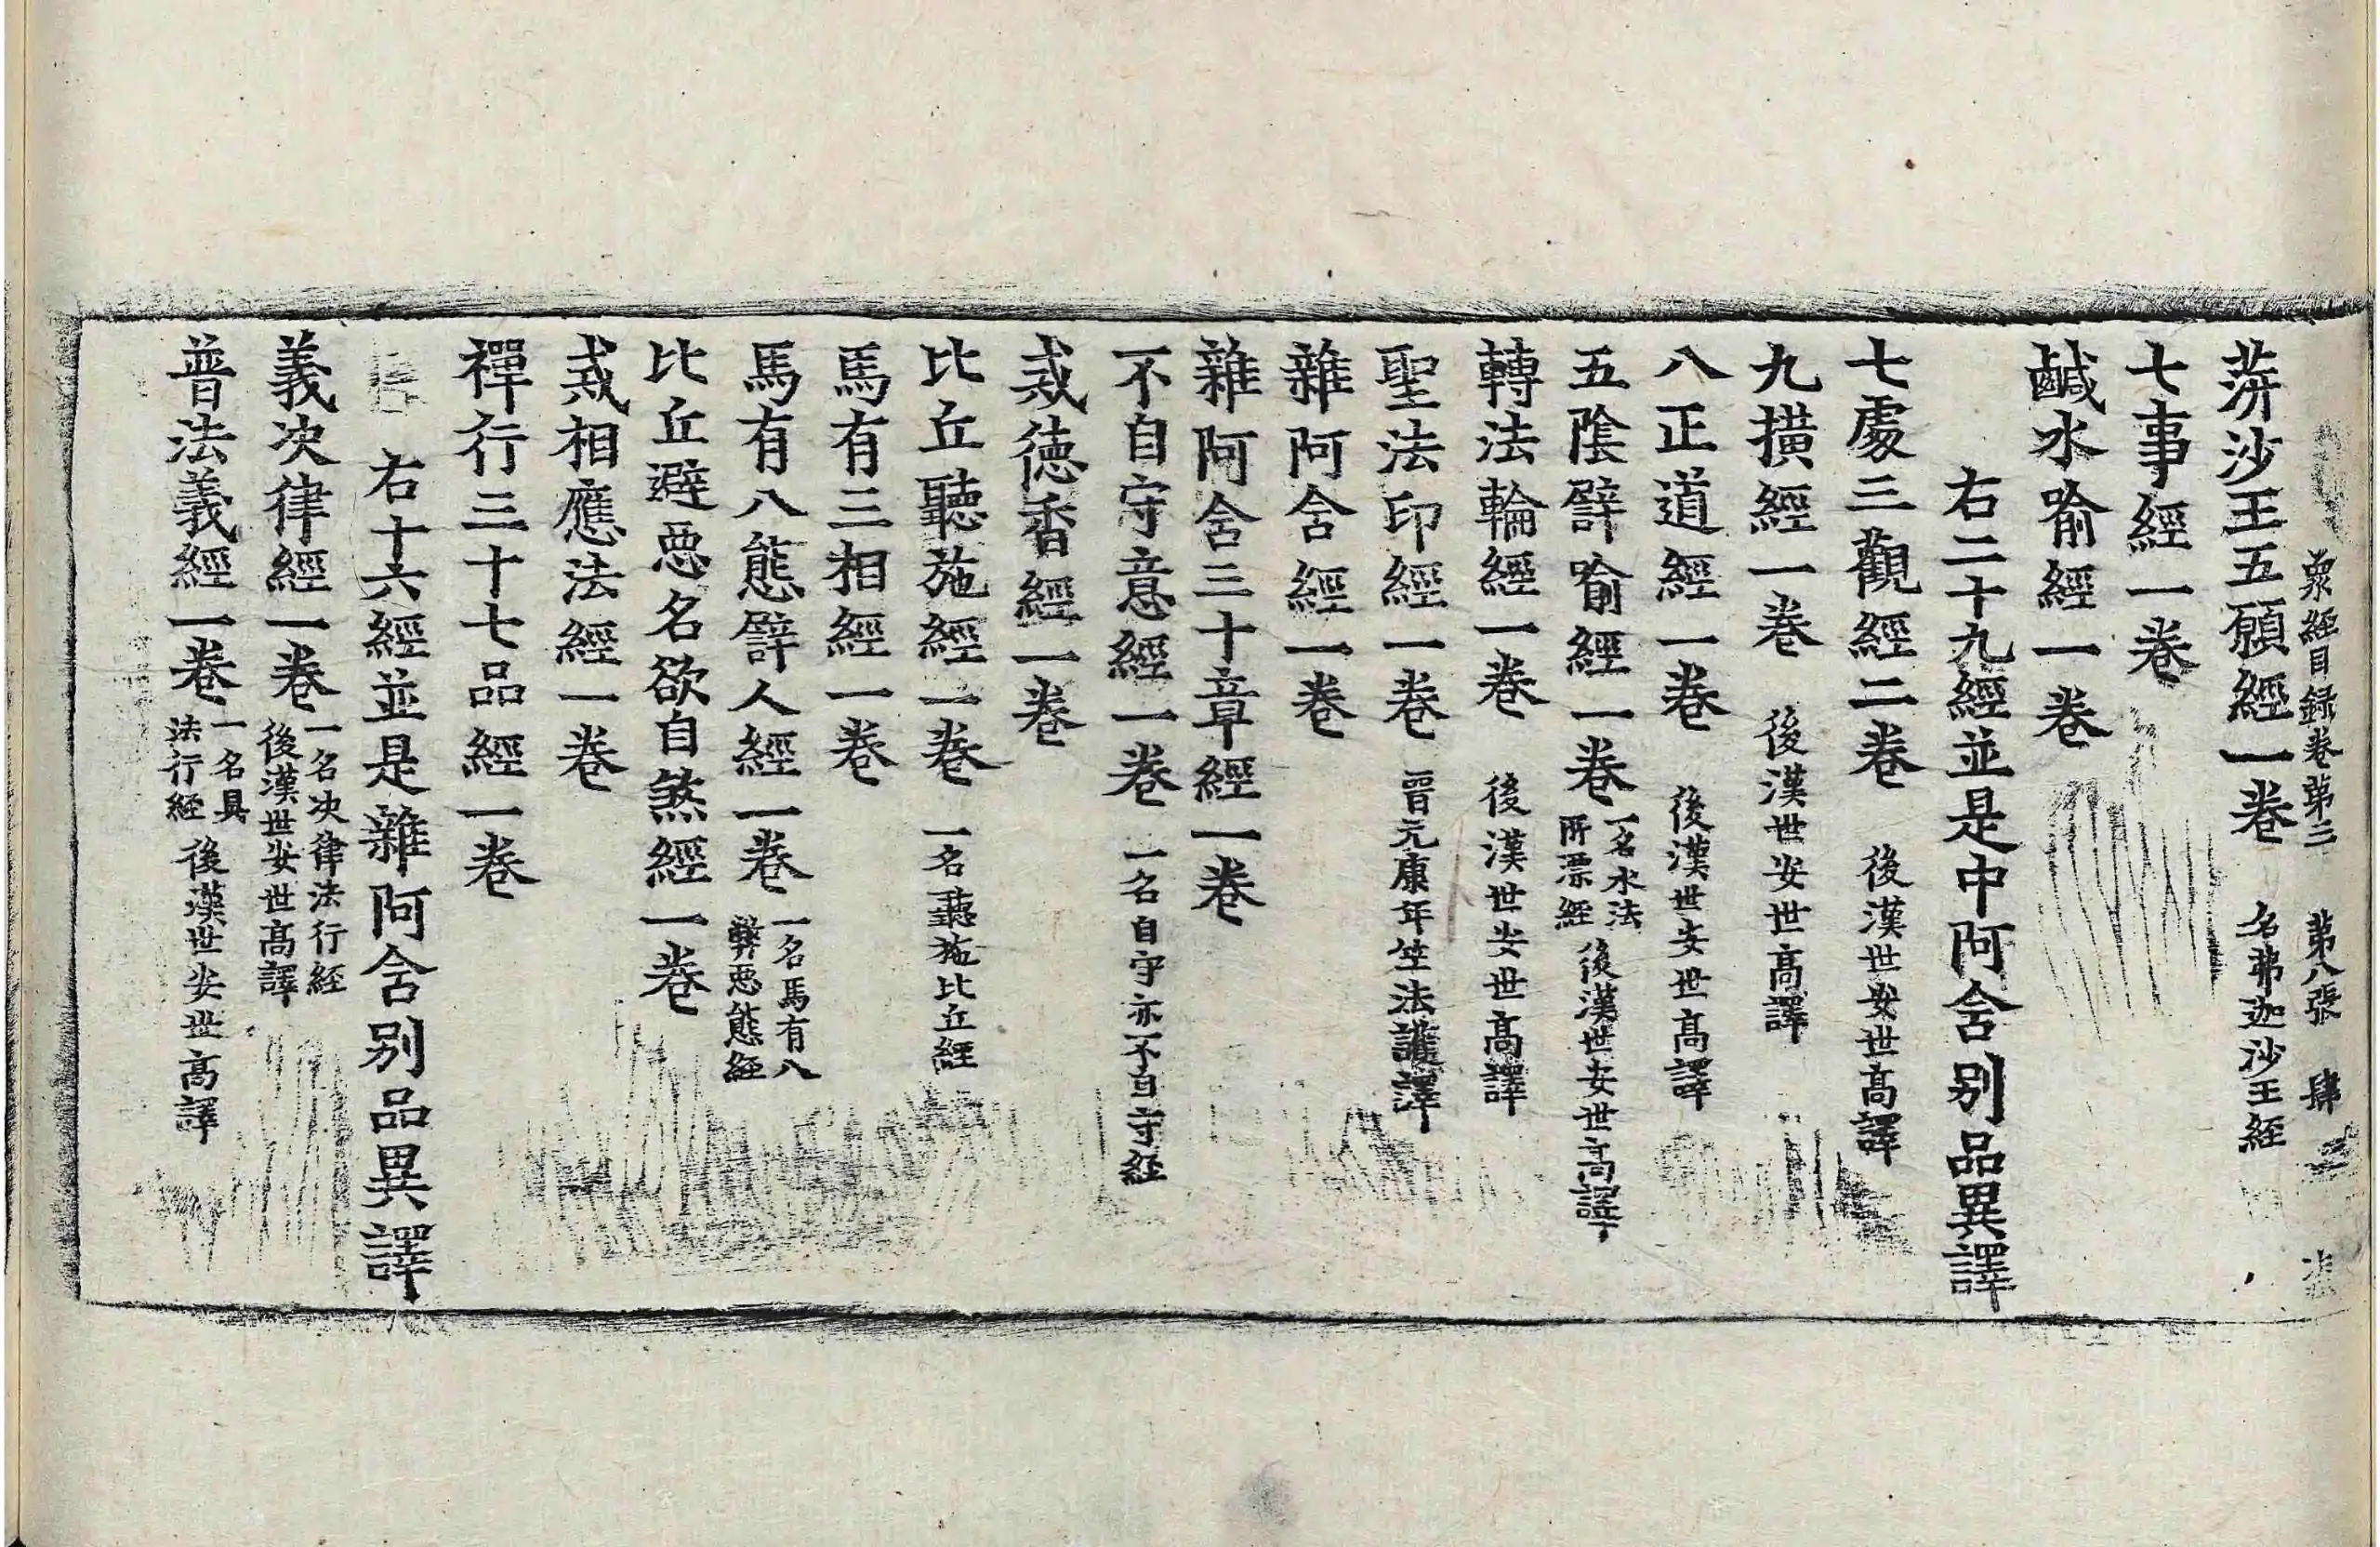 衆經目録卷第三 第八張 肆
蓱沙王五願經一卷 名弗迦沙王經
七事經一卷
鹹水喻經一卷
右二十九經並是中阿含别品異譯
七處三觀經二卷 後漢世安世高譯
九撗經一卷 後漢世安世高譯
八正道經一卷 後漢世安世高譯
五隂譬喻經一卷 一名水法所漂經 後漢世安世高譯
轉法輪經一卷 後漢世安世高譯
聖法印經一卷 晋元康年竺法護譯
雜阿含經一卷
雜阿含三十章經一卷
不自守意經一卷 一名自守亦不自守經
戒徳香經一卷
比丘聽施經一卷 一名聽施比丘經
馬有三相經一卷
馬有八態譬人經一卷 一名馬有八弊惡態經
比丘避惡名欲自煞經一卷
戒相應法經一卷
禪行三十七品經一卷
右十六經並是雜阿含别品異譯
義决律經一卷 一名决律法行經 後漢世安世高譯
普法義經一卷 一名具法行經 後漢世安世高譯